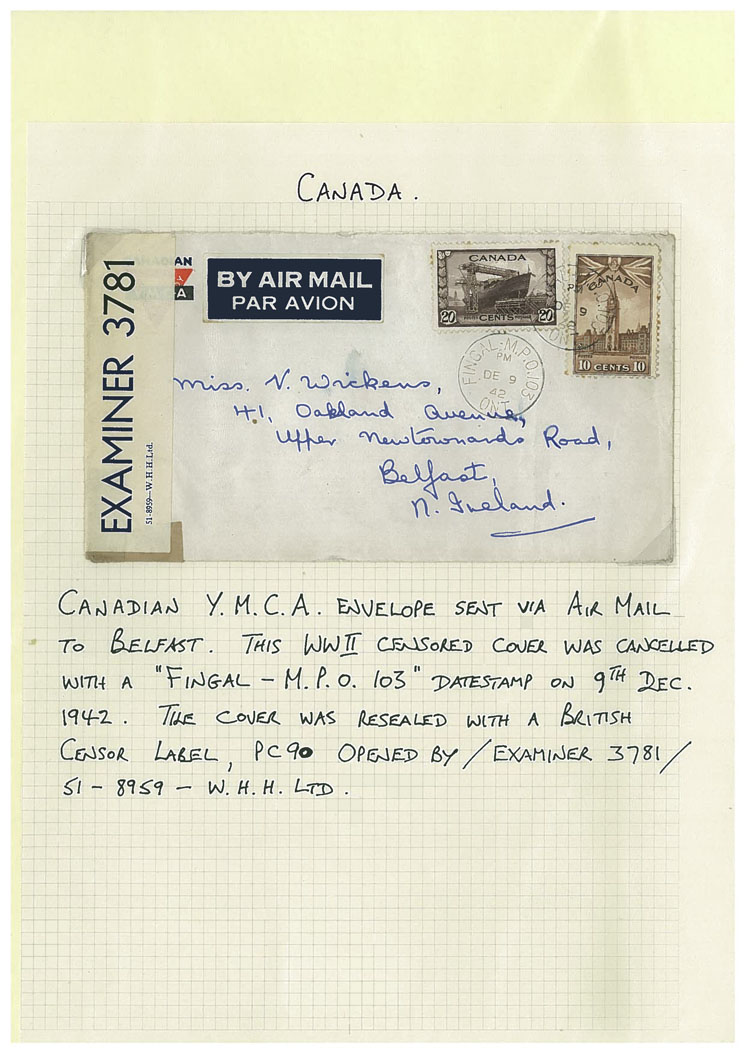 CANADA.
EXAMINER 3781
51-8959—W.H.H.Ltd.
AN
A
BY AIR MAIL
PAR AVION
CANADA
20 CENTS 20
CANADA
10 CENTS 10
FINGAL-M.P.O. 103
PM
DE 9
42
ONT.
Miss. V. Wickens,
41, Oakland Avenue,
Upper Newtownards Road,
Belfast,
N. Ireland.
CANADIAN Y.M.C.A. ENVELOPE SENT VIA AIR MAIL
TO BELFAST. THIS WWII CENSORED COVER WAS CANCELLED
WITH A "FINGAL - M.P.O. 103" DATESTAMP ON 9TH DEC.
1942. THE COVER WAS RESEALED WITH A BRITISH
CENSOR LABEL, PC90 OPENED BY / EXAMINER 3781 /
51 - 8959 - W.H.H. LTD.